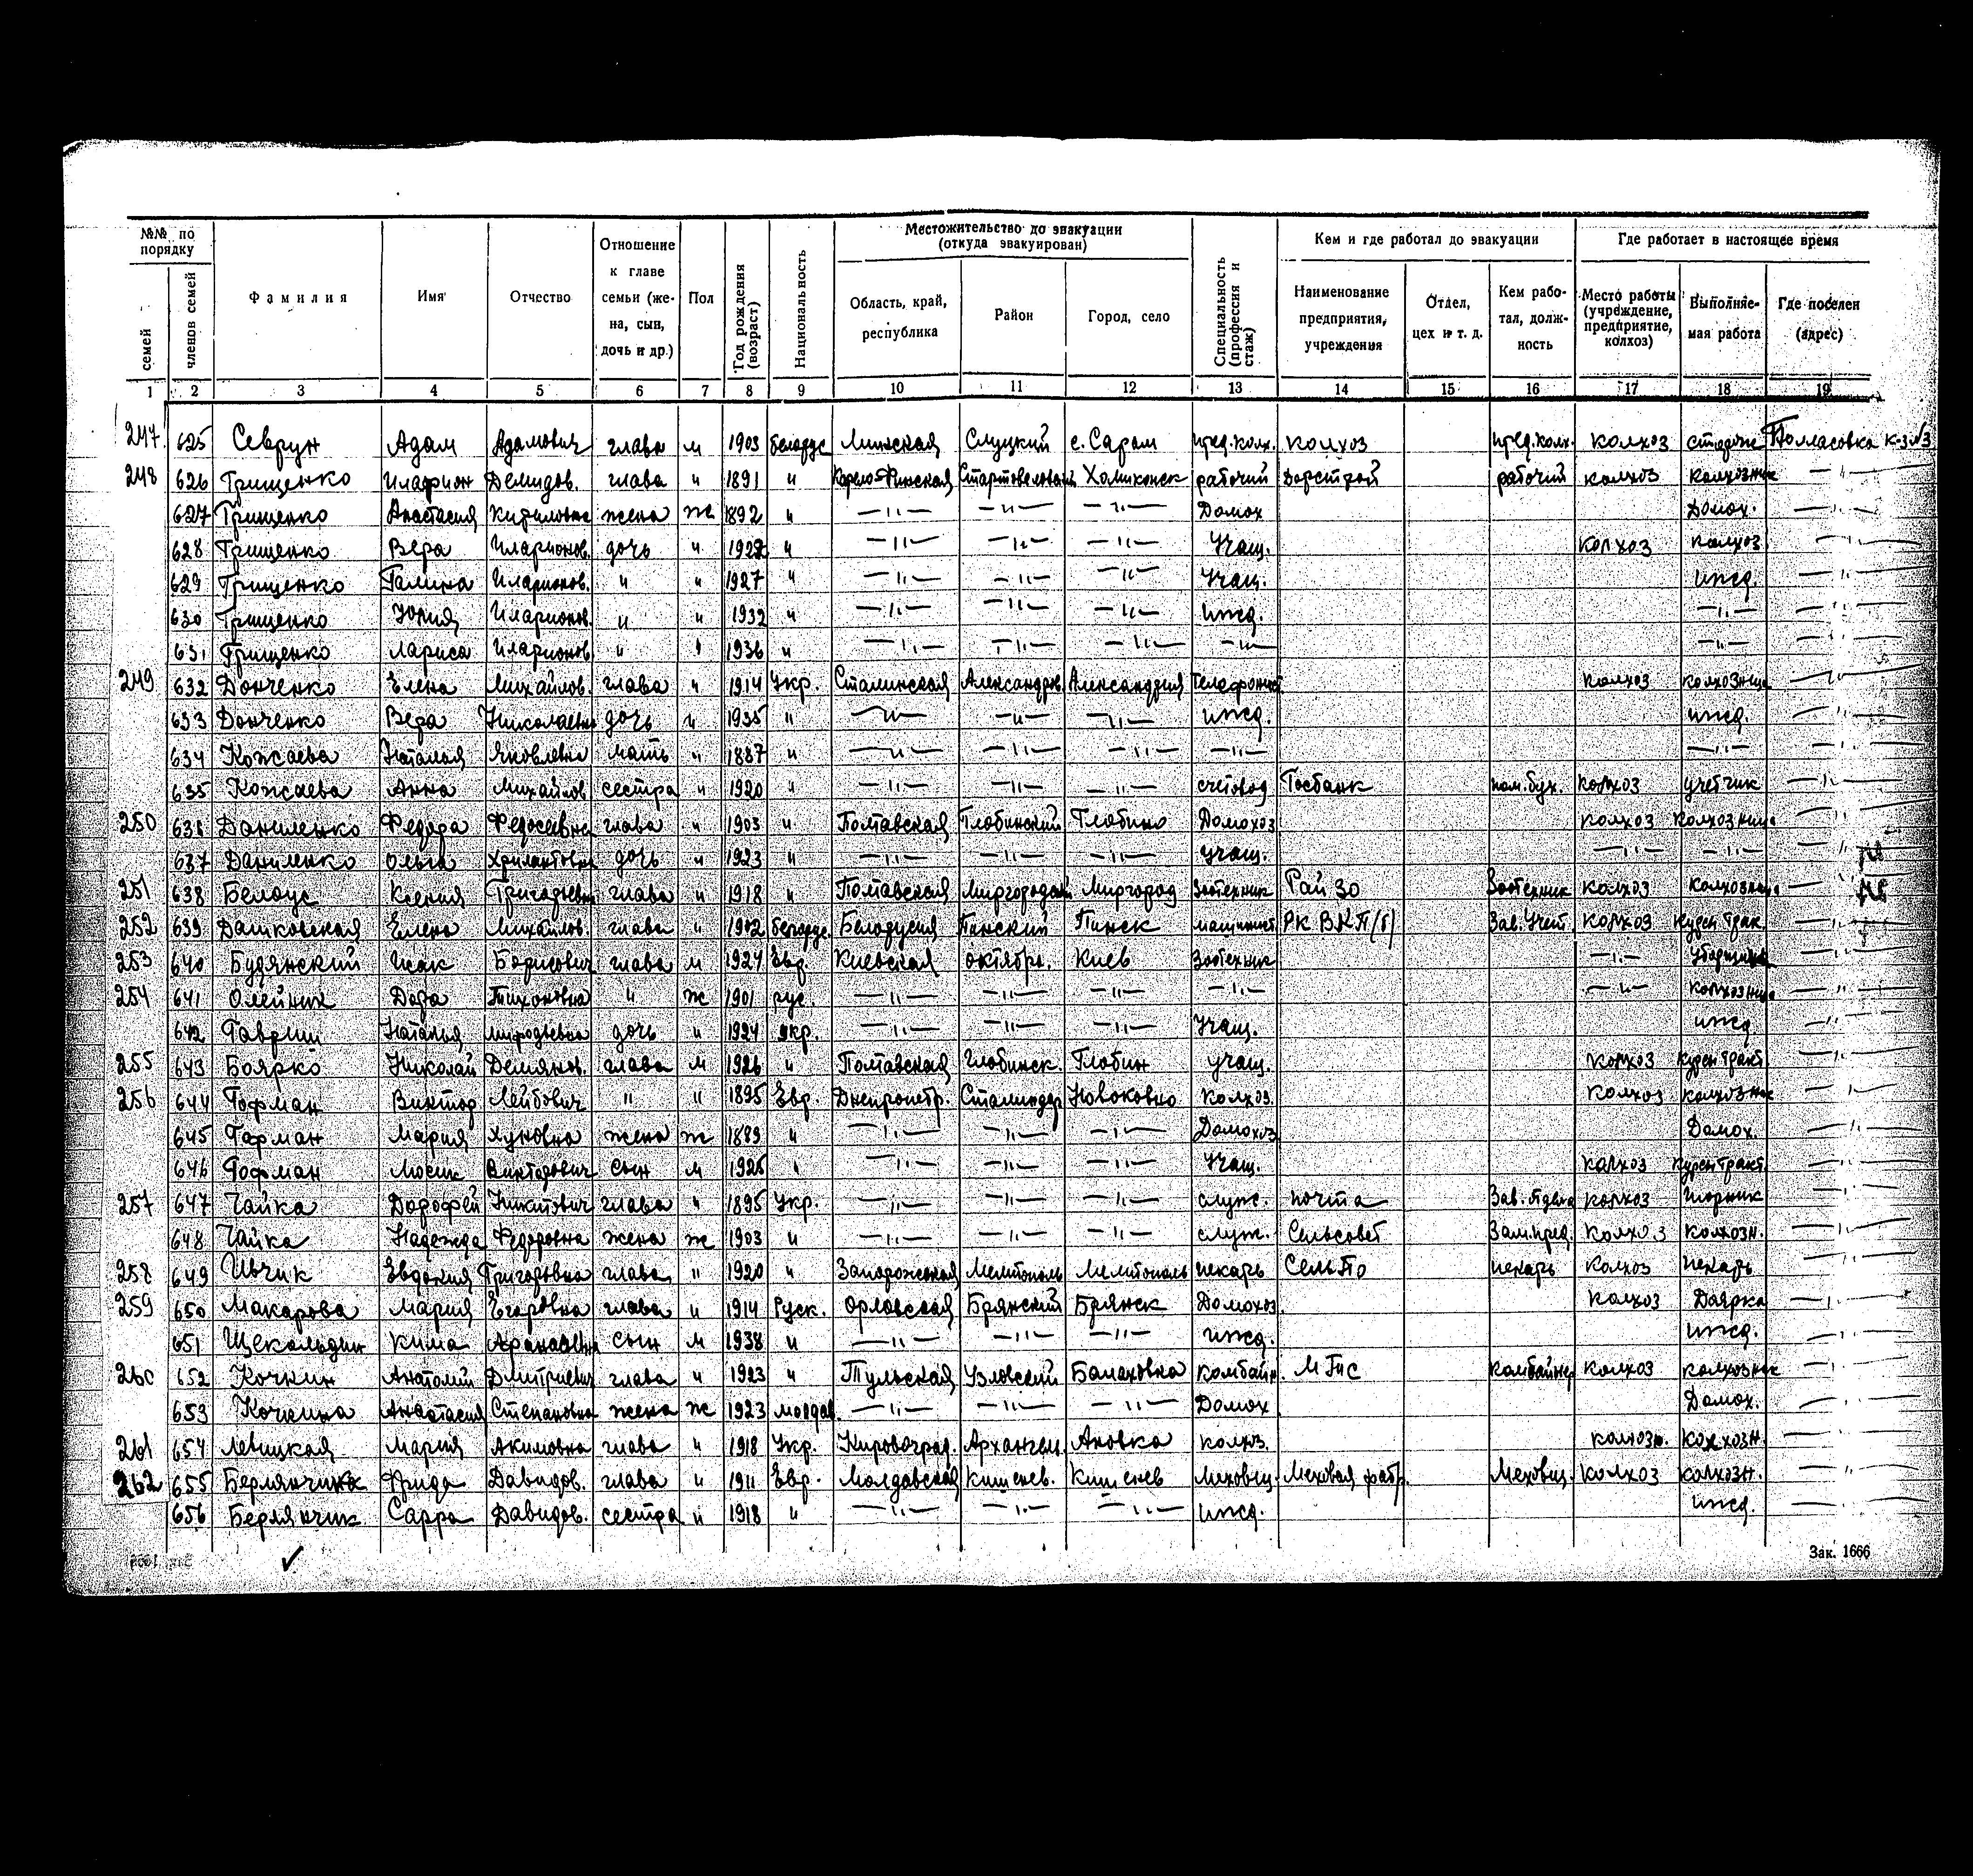 №№ по порядку
семей
членов семей
Фамилия
Имя
Отчество
Отношение к главе семьи (жена, сын, дочь и др.)
Пол
Год рождения (возраст)
Национальность
Местожительство до эвакуации (откуда эвакуирован)
Область, край, республика
Район
Город, село
Специальность (профессия и стаж)
Кем и где работал до эвакуации
Наименование предприятия, учреждения
Отдел, цех и т. д.
Кем работал, должность
Где работает в настоящее время
Место работы (учреждение, предприятие, колхоз)
Выполняемая работа
Где поселен (адрес)
1 2 3 4 5 6 7 8 9 10 11 12 13 14 15 16 17 18 19
247 625 Севрун Адам Адамович глава м 1903 белорус Слуцкий с. пред.колх. колхоз пред.колх. колхоз
248 626 Грищенко Демидов. глава " 1891 " рабочий Дорстрой рабочий колхоз колхозник — " —
627 Грищенко Анастасия жена ж 1892 " —"— —"— —"— Домох Домох. —"—
628 Грищенко Вера Иларионов. дочь " 1922 " —"— —"— —"— Учащ. колхоз колхоз —"—
629 Грищенко Галина Иларионов. " " 1927 " —"— —"— —"— Учащ. ижд. —"—
630 Грищенко Иларионов. " " 1932 " —"— —"— —"— ижд. —"— —"—
631 Грищенко Лариса Иларионов " " 1936 " —"— —"— —"— —"— —"— —"—
249 632 Донченко Елена Михайлов. глава " 1914 Укр. Сталинская колхоз колхозница —"—
633 Донченко Вера Николаевна дочь " 1935 " —"— —"— —"— ижд. ижд. —"—
634 Кожаева Наталья Яковлевна мать " 1887 " —"— —"— —"— —"— —"— —"—
635 Кожаева Анна Михайлов сестра " 1920 " —"— —"— —"— счетовод Госбанк пом.бух. колхоз учетчик —"—
250 636 Даниленко Федора Федосеевна глава " 1903 " Полтавская Глобинский Глобино Домохоз колхоз колхозница —"—
637 Даниленко Ольга дочь " 1923 " —"— —"— —"— учащ. —"— —"— —"—
251 638 Белоус Ксения Григорьевн глава " 1918 " Полтавская Миргород Зоотехник Рай Зо Зоотехник колхоз —"—
252 639 Дашковская Елена Михайлов. глава " 1902 белорус. Белорусия Пинский Пинск машинист РК ВКП/б/ Зав. Учет. колхоз —"—
253 640 Будянский Исак Борисович глава м 1924 Евр. Киевская октябрь. Киев Зоотехник —"— —"—
254 641 Олейник Дора Тихоновна " ж 1901 рус. —"— —"— —"— —"— —"— колхозница —"—
642 Гаврин Наталья дочь " 1924 укр. —"— —"— —"— Учащ. ижд —"—
255 643 Боярко Николай Демянов. глава м 1926 " Полтавская Глобинск. Глобин учащ. колхоз —"—
256 644 Гофман Виктор Лейбович " " 1895 Евр. Днепропетр. колхоз. колхоз колхозник —"—
645 Гофман Мария жена ж 1889 " —"— —"— —"— Домохоз Домох. —"—
646 Гофман Мосик Викторович сын м 1926 " —"— —"— —"— Учащ. колхоз —"—
257 647 Чайка Дорофей Никитович глава " 1895 Укр. —"— —"— —"— служ. почта колхоз —"—
648 Чайка Надежда Федоровна жена ж 1903 " —"— —"— —"— служ. Сельсовет Зам.пред. колхоз колхозн. —"—
258 649 Ивчик Евдокия Григоровна глава " 1920 " Запорожская Мелитополь Мелитополь пекарь СельПо пекарь колхоз пекарь —"—
259 650 Макарова Мария Егоровна глава " 1914 Руск. Орловская Брянский Брянск Домохоз. колхоз Доярка —"—
651 Щекольдин Кима сын м 1938 " —"— —"— —"— ижд. ижд. —"—
260 652 Кочкин Анатолий Дмитриевич глава " 1923 " Тульская Узловский Комбайн. МТС комбайнер колхоз колхозник —"—
653 Кочкина Анастасия Степановна жена ж 1923 молдав. —"— —"— —"— Домох Домох. —"—
261 654 Левицкая Мария Акимовна глава " 1918 Укр. Кировоград. Архангель. колхоз. колхозн. —"—
262 655 Фрида Давидов. глава " 1911 Евр. Молдавская Кишенев. Кишенев Меховщ. Меховая фабр. Меховщ. колхоз колхозн. —"—
656 Берлянчик Сарра Давидов. сестра " 1918 " —"— —"— —"— ижд. ижд. —"—
Зак. 1666